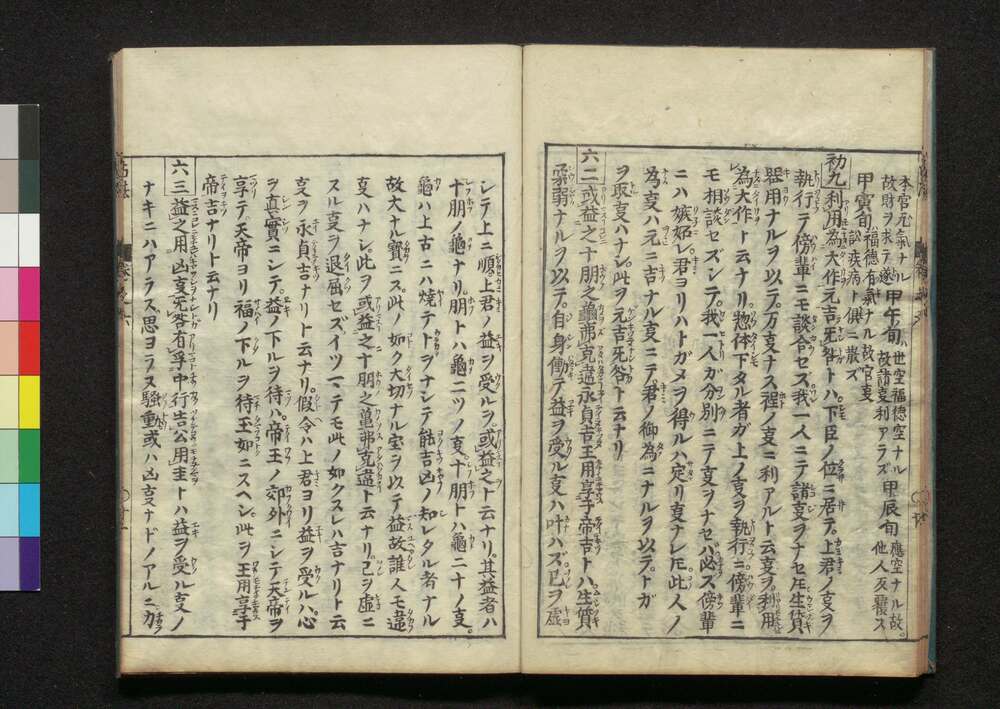 本宮元氣ナル 甲午旬 世空福德空ナル 甲辰旬 應空ナル故
故財ヲ求テ遂 故諸事利アラズ 他人反覆ス
甲寅旬 福德有氣ナル故官事
訟疾病ト俱ニ散ズ
初九 利用為大作元吉旡咎トハ下臣ノ位ニ居テ上君ノ事ヲ
執行テ傍輩ニモ談合セズ我一人ニテ諸事ヲナセ𪜈生質
器用ナルヲ以テ万事ナス程ノ事ニ利アルト云事ヲ利用
為大作ト云ナリ惣体下タル者ガ上ノ事ヲ執行ニ傍輩ニ
モ相談セズシテ我一人ガ分別ニテ事ヲナセバ必ズ傍輩
ニハ嫉妬レ君ヨリハトガメヲ得ルハ定リ事ナレ𪜈此人ノ
為事ハ元ニ吉ナル事ニテ君ノ御為ニナルヲ以テトガ
ヲ取事ハナシ此ヲ元吉旡咎ト云ナリ
六二 或益之十朋之龜弗克違永貞吉王用享于帝吉トハ生質
柔弱ナルヲ以テ自身働テ益ヲ受ル事ハ叶ハズ己ヲ虚
シテ上ニ順上君ノ益ヲ受ルヲ或益之ト云ナリ其益者ハ
十朋ノ龜ナリ朋トハ龜二ツノ事十朋トハ龜二十ノ事
龜ハ上古ニハ燒テトヲナシテ能吉凶ノ知レタル者ナル
故大ナル寶ニス此ノ如ク大切ナル宝ヲ以テ益故誰人モ違
事ハナシ此ヲ或益之十朋之龜弗克違ト云ナリ己ヲ虚ニ
スル事ヲ退屈セズイツマテモ此ノ如クスレハ吉ナリト云
事ヲ永貞吉ナリト云ナリ假令ハ上君ヨリ益ヲ受ルハ心
ヲ真實ニシテ益ノ下ルヲ待ハ帝王ノ郊外ニシテ天帝ヲ
享テ天帝ヨリ福ノ下ルヲ待玉如ニスヘシ此ヲ王用享于
帝吉ナリト云ナリ
六三 益之用凶事旡咎有孚中行告公用圭トハ益ヲ受ル事ノ
ナキニハアラス思ヨラヌ騷動或ハ凶事ナドノアルニカ